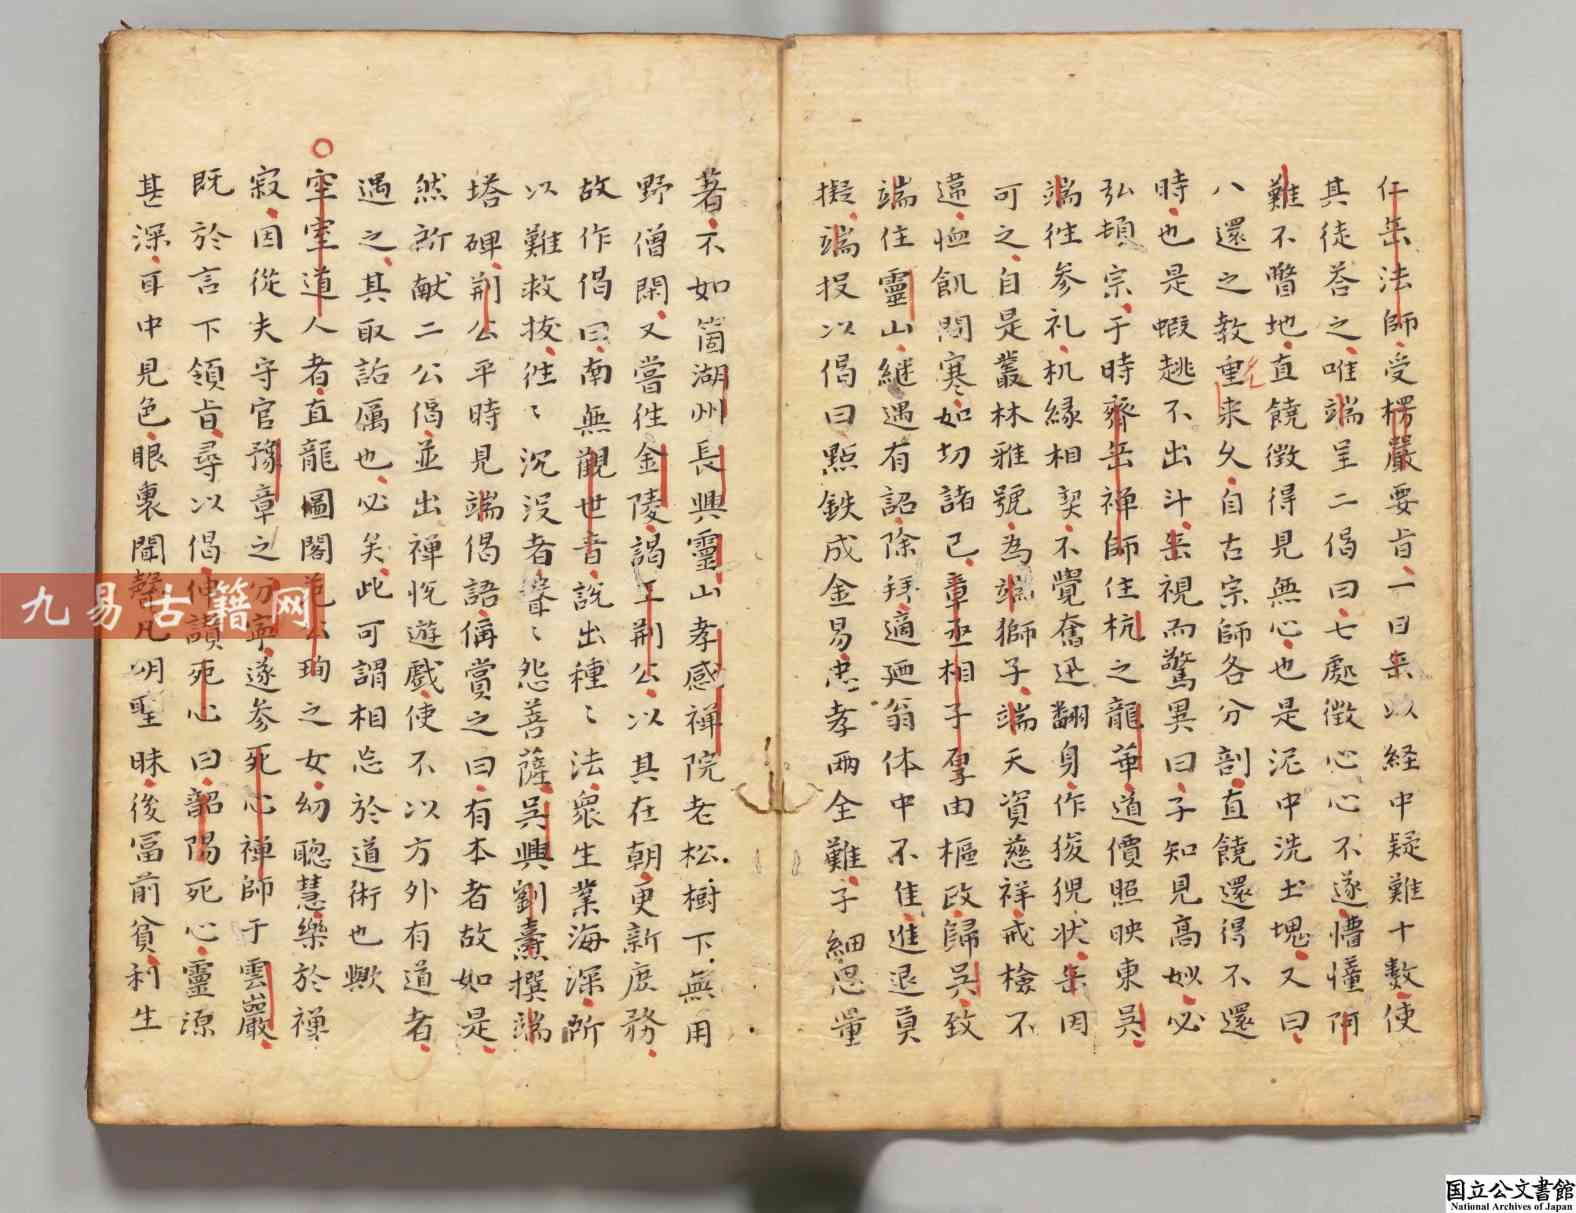 仁岳法師受楞嚴要旨一日岳以経中疑難十數使
其徒荅之唯端呈二偈曰七處徵心心不遂懵懂阿
難不瞥地直饒徵得見無心也是泥中洗土塊又曰
八還之教重来久自古宗師各分剖直饒還得不還
時也是蝦趒不出斗岳視而驚異曰子知見高妙必
弘頓宗于時齊岳禅師住杭之龍華道價照映東吳
端徃参礼机縁相契不覺奮迅翻身作狻猊状岳因
可之自是叢林雅號為端獅子端天資慈祥戒檢不
違恤飢閔寒如切諸己章丞相子厚由樞政歸吳致
端住靈山継遇有詔除拜適廼翁体中不佳進退莫
擬端投以偈曰點鉄成金易忠孝兩全難子細思量
著不如箇湖州長興靈山孝感禅院老松樹下無用
野僧閑又嘗徃金陵謁王荆公以其在朝更新庶務
故作偈曰南無觀世音說出種〻法衆生業海深所
以難救拔徃〻沉没者聲〻怨菩薩吳興劉燾撰端
塔碑荆公平時見端偈語稱賞之曰有本者故如是
然所献二公偈並出禅悅遊戲使不以方外有道者
遇之其取詬厲也必矣此可謂相忘於道術也歟
空室道人者直龍圖閣范公珣之女幼聰慧樂於禅
寂因從夫守官豫章之分寧遂参死心禅師于雲巖
既於言下領旨尋以偈伸讃死心曰韶陽死心靈源
甚深耳中見色眼裏聞聲凡明聖昧後冨前貧利生
九易古籍网
国立公文書館
National Archives of Japan